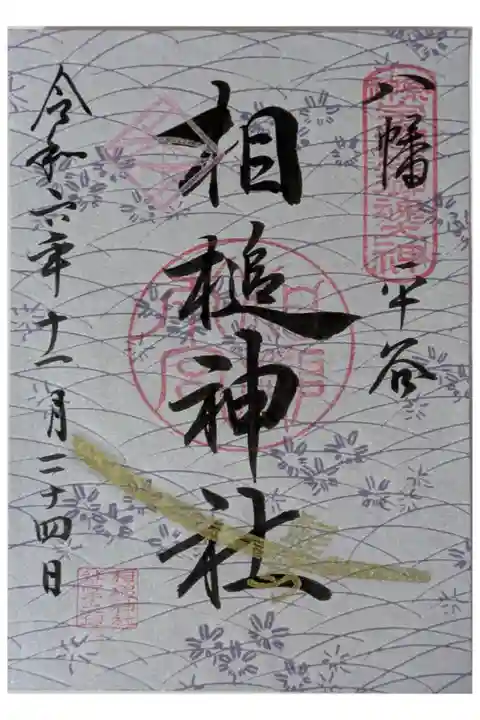 八幡 平谷
相槌神社
令和六年十一月二十四日